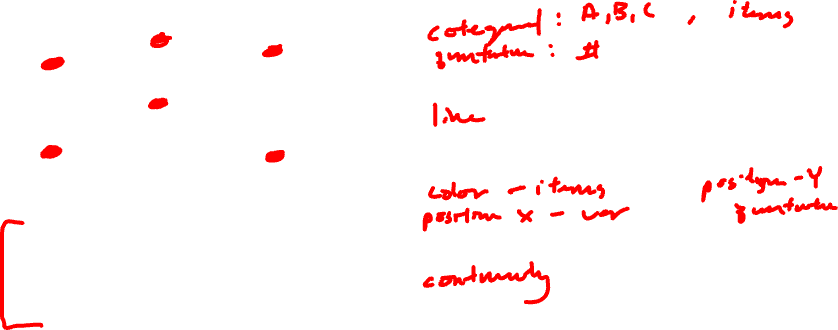 categorical : A, B, C , items
quantitative : #
line
color - items
position x - var
position - Y
quantitative
continuity